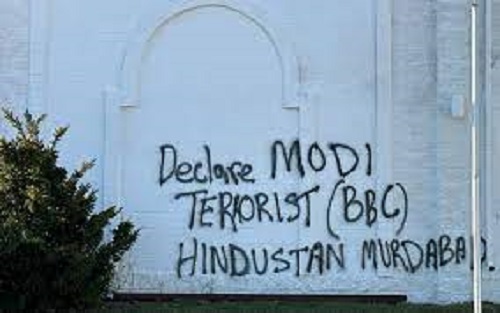 Declare MODI
TERRORIST (BBC)
HINDUSTAN MURDABAD.